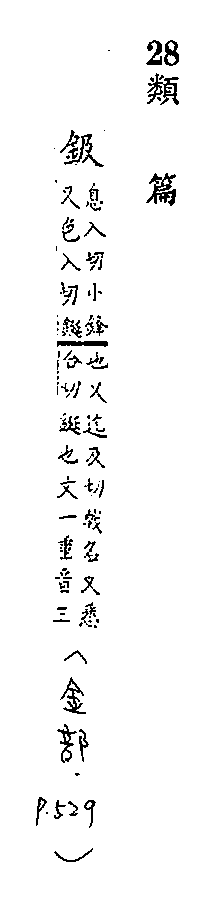 28 類篇
鈒
息入切小鋒
又色入切鋋
也又迄及切戟名又悉
合切鋋也文一重音三
(金部.P.529)